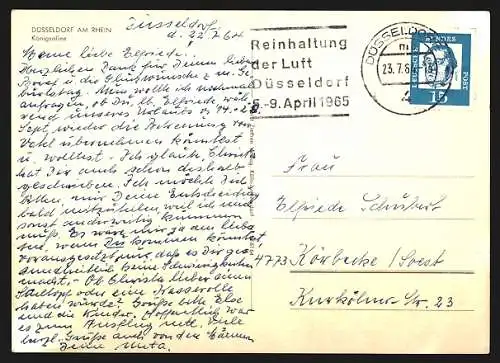 DÜSSELDORF AM RHEIN
Königsallee
Düsseldorf,
d. 22.7.64
Meine liebe Elfriede!
Herzlichen Dank für Deinen lieben
Brief u. die Glückwünsche z. m. Ge-
burtstag. Nun wollte ich nochmal
anfragen, ob Du, lb. Elfriede, wäh-
rend unseres Urlaubs v. 14.-28.
Sept. wieder die Betreuung von
übernehmen könntest
u. wolltest. Ich glaub, Christa
hat Dir auch schon deshalb
geschrieben. Ich möchte Dich
bitten, mir Deine Entscheidung
bald mitzuteilen, weil ich mich
sonst anderweitig kümmern
muß. Es wäre mir ja am liebs-
ten, wenn Du kommen könntest,
vorausgesetzt nur, daß es Dir ge-
sundheitlich keine Schwierigkeiten
macht. - Ob Christa lieber einen
Stieltopf oder eine Kasserolle
haben würde? Grüße bitte Else
und die Kinder. Hoffentlich war
es zum Ausflug nett. Viele
herzl. Grüße auch von
Deine Meta.
Reinhaltung
der Luft
Düsseldorf
6.-9. April 1965
DÜSSELDORF
23.7.6
BUNDES
POST
15
Frau
Elfriede Schubert
4773 Körbecke/Soest
Kurkölner Str. 23